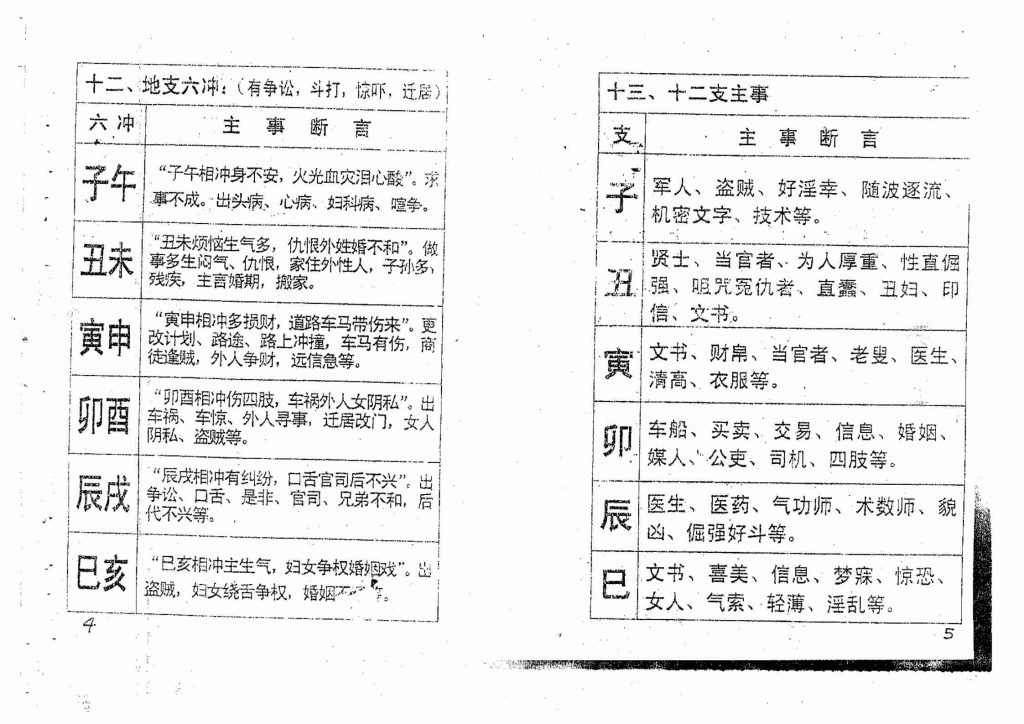 十二、地支六冲：（有争讼，斗打，惊吓，迁居）
六冲 主事断言
子午 “子午相冲身不安，火光血灾泪心酸”。求
事不成。出头病、心病、妇科病、喧争。
丑未 “丑未烦恼生气多，仇恨外姓婚不和”。做
事多生闷气、仇恨，家住外性人，子孙多，
残疾，主言婚期，搬家。
寅申 “寅申相冲多损财，道路车马带伤来”。更
改计划、路途、路上冲撞，车马有伤，商
徒逢贼，外人争财，远信息等。
卯酉 “卯酉相冲伤四肢，车祸外人女阴私”。出
车祸、车惊、外人寻事，迁居改门，女人
阴私、盗贼等。
辰戌 “辰戌相冲有纠纷，口舌官司后不兴”。出
争讼、口舌、是非、官司、兄弟不和，后
代不兴等。
巳亥 “巳亥相冲主生气，妇女争权婚姻戏”。出
盗贼，妇女绕舌争权，婚姻不等。
4
十三、十二支主事
支 主事断言
子 军人、盗贼、好淫幸、随波逐流、
机密文字、技术等。
丑 贤士、当官者、为人厚重、性直倔
强、咀咒冤仇者、直蠢、丑妇、印
信、文书。
寅 文书、财帛、当官者、老叟、医生、
清高、衣服等。
卯 车船、买卖、交易、信息、婚姻、
媒人、公吏、司机、四肢等。
辰 医生、医药、气功师、术数师、貌
凶、倔强好斗等。
巳 文书、喜美、信息、梦寐、惊恐、
女人、气索、轻薄、淫乱等。
5